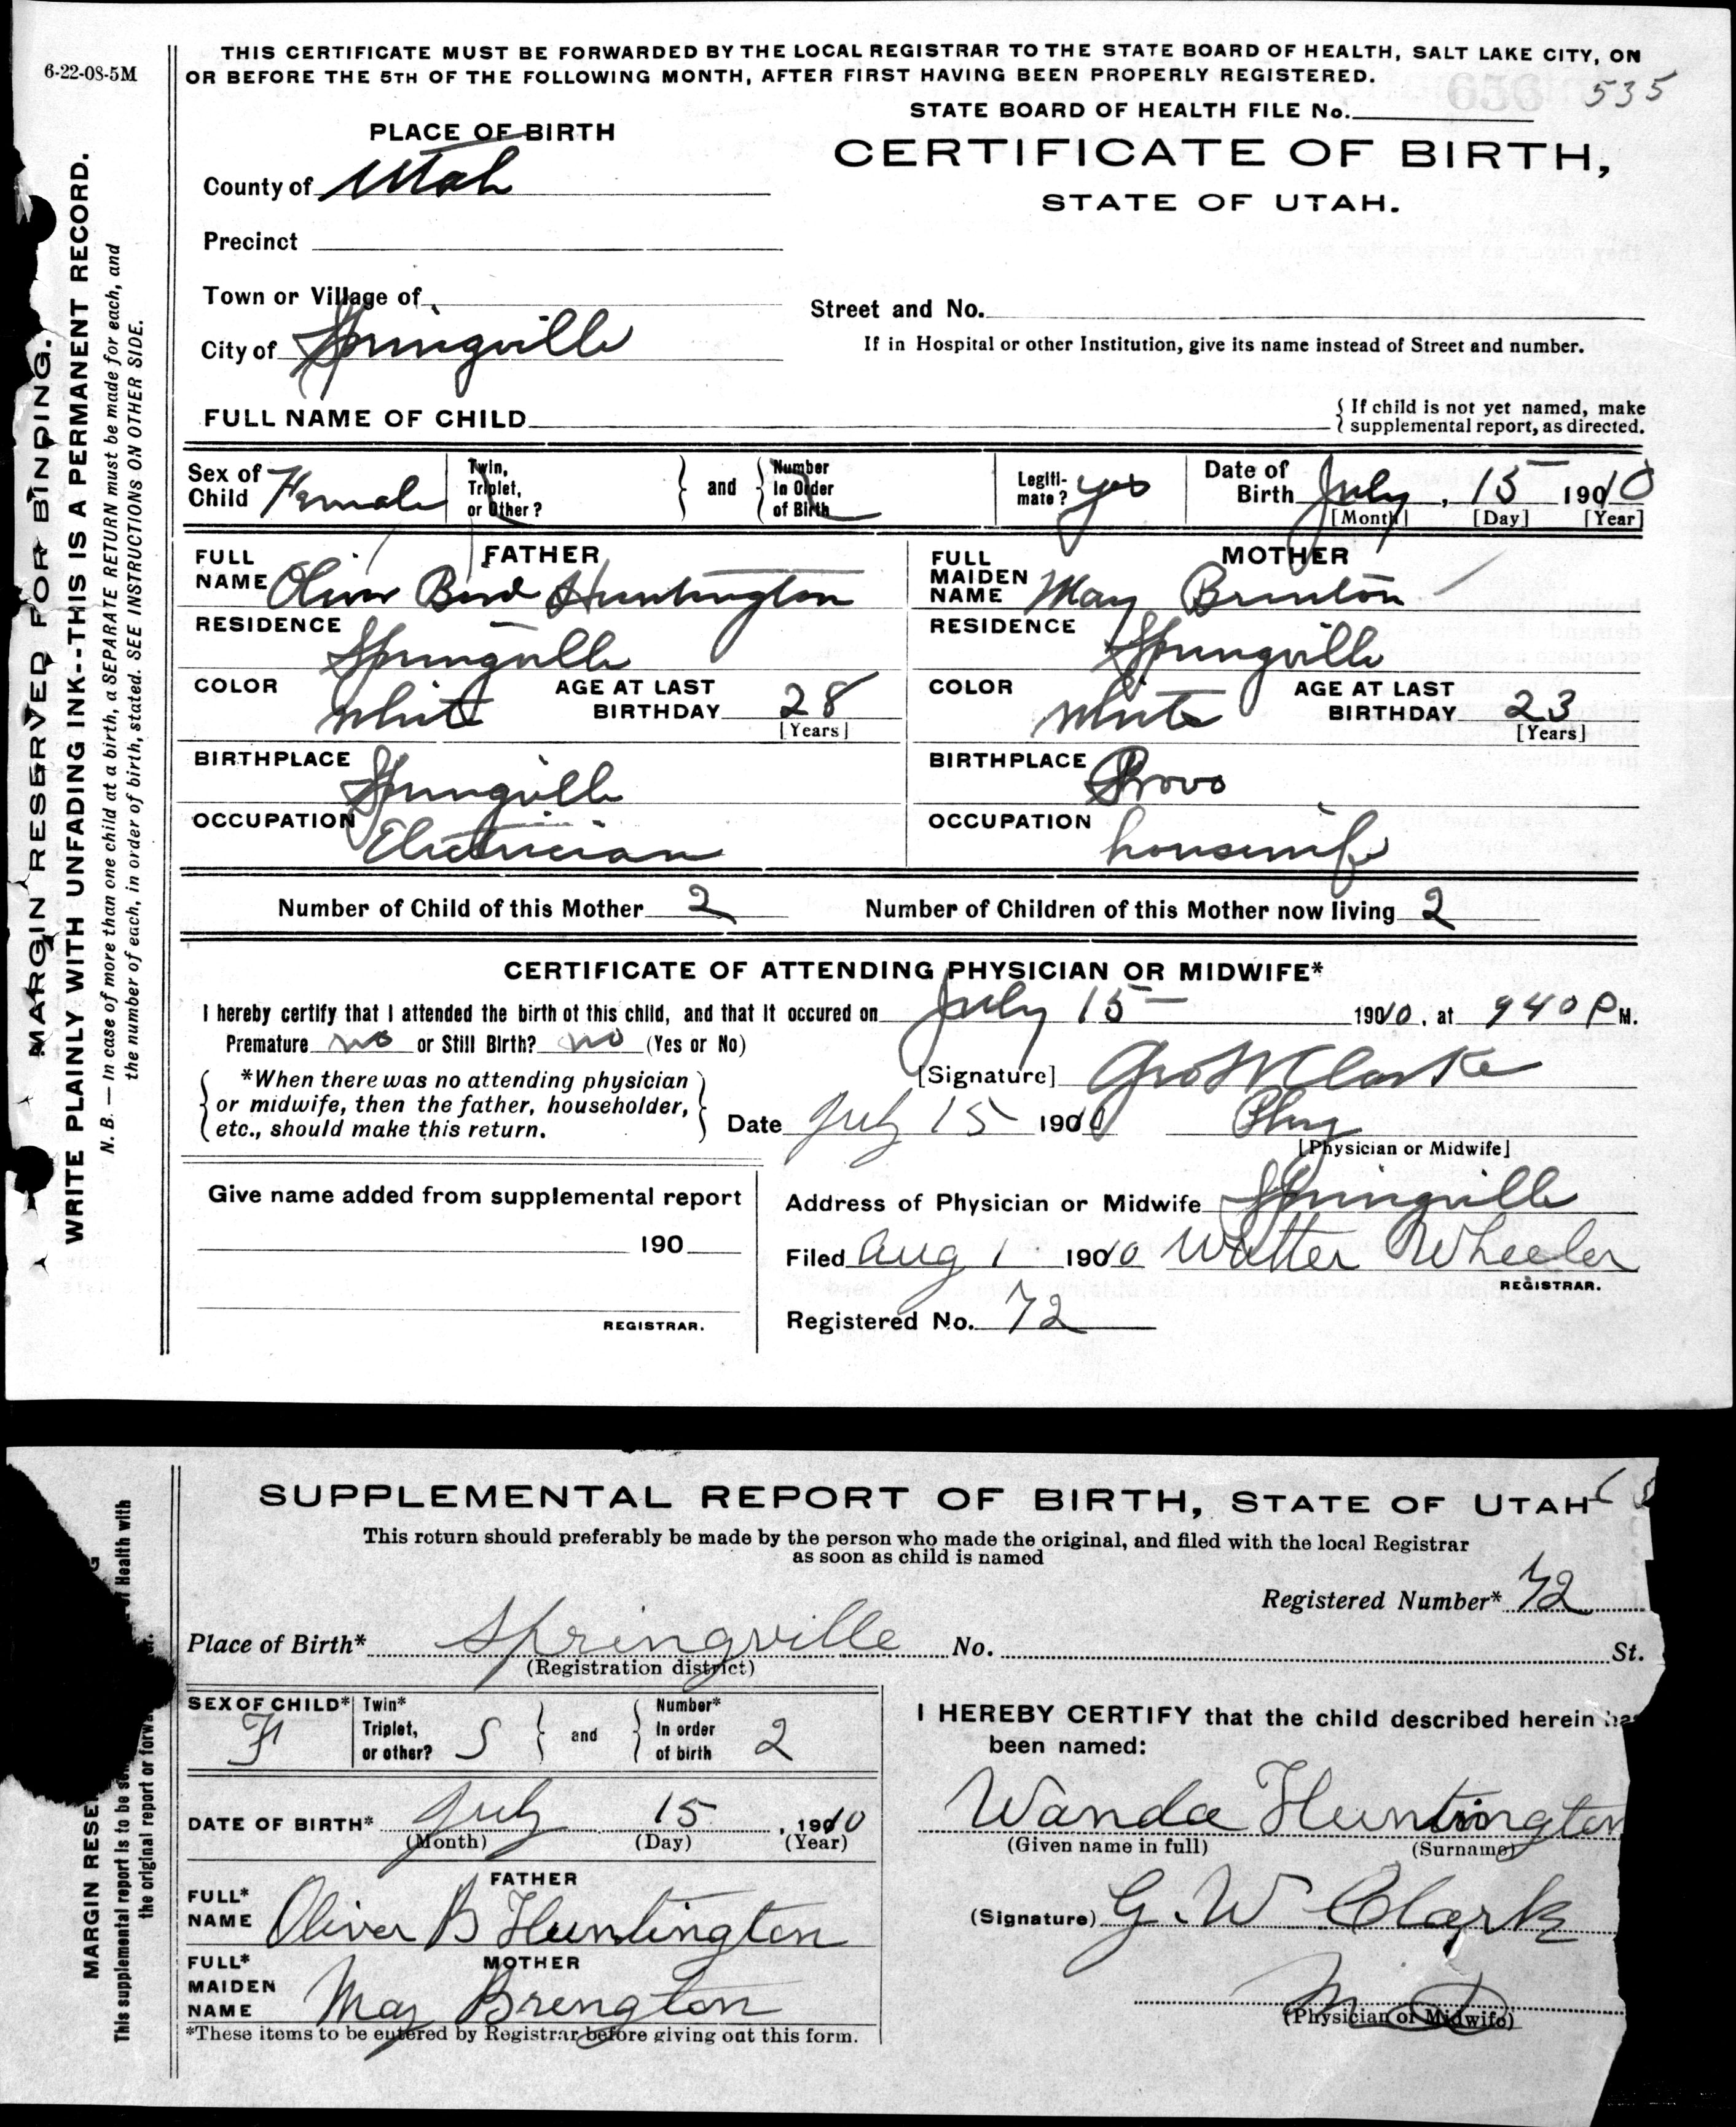 6-22-08-5M
THIS CERTIFICATE MUST BE FORWARDED BY THE LOCAL REGISTRAR TO THE STATE BOARD OF HEALTH, SALT LAKE CITY, ON
OR BEFORE THE 5TH OF THE FOLLOWING MONTH, AFTER FIRST HAVING BEEN PROPERLY REGISTERED.
656 535
STATE BOARD OF HEALTH FILE No.
PLACE OF BIRTH
CERTIFICATE OF BIRTH,
STATE OF UTAH.
County of Utah
Precinct
Town or Village of
Street and No.
City of Springville
If in Hospital or other Institution, give its name instead of Street and number.
FULL NAME OF CHILD
{ If child is not yet named, make
supplemental report, as directed.
Sex of Child Female
Twin, Triplet, or Other? } and { Number In Order of Birth
Legiti-mate? yes
Date of Birth July, 15 1910
[Month] [Day] [Year]
FATHER
FULL NAME Oliver Bird Huntington
RESIDENCE Springville
COLOR White AGE AT LAST BIRTHDAY 28
[Years]
BIRTHPLACE Springville
OCCUPATION Electrician
MOTHER
FULL MAIDEN NAME May Brinton
RESIDENCE Springville
COLOR White AGE AT LAST BIRTHDAY 23
[Years]
BIRTHPLACE Provo
OCCUPATION housewife
Number of Child of this Mother 2 Number of Children of this Mother now living 2
CERTIFICATE OF ATTENDING PHYSICIAN OR MIDWIFE*
I hereby certify that I attended the birth ot this child, and that it occured on July 15 1910, at 940 P M.
Premature no or Still Birth? no (Yes or No)
*When there was no attending physician
or midwife, then the father, householder,
etc., should make this return.
[Signature] Geo W Clarke
Date July 15 1910 Phy
[Physician or Midwife]
Give name added from supplemental report
190
REGISTRAR.
Address of Physician or Midwife Springville
Filed Aug 1 1910 Walter Wheeler
REGISTRAR.
Registered No. 72
MARGIN RESERVED FOR BINDING.
WRITE PLAINLY WITH UNFADING INK--THIS IS A PERMANENT RECORD.
N. B. — In case of more than one child at a birth, a SEPARATE RETURN must be made for each, and
the number of each, in order of birth, stated. SEE INSTRUCTIONS ON OTHER SIDE.
SUPPLEMENTAL REPORT OF BIRTH, STATE OF UTAH
This return should preferably be made by the person who made the original, and filed with the local Registrar
as soon as child is named
Registered Number* 72
Place of Birth* Springville No. St.
(Registration district)
SEX OF CHILD* F
Twin* Triplet, or other? S } and { Number* In order of birth 2
DATE OF BIRTH* July 15, 1910
(Month) (Day) (Year)
FATHER
FULL* NAME Oliver B Huntington
MOTHER
FULL* MAIDEN NAME May Brengton
*These items to be entered by Registrar before giving out this form.
I HEREBY CERTIFY that the child described herein has
been named:
Wanda Huntington
(Given name in full) (Surname)
(Signature) G. W Clark
M D
(Physician or Midwife)
MARGIN RESE
This supplemental report is to be of Health with
the original report or forwa